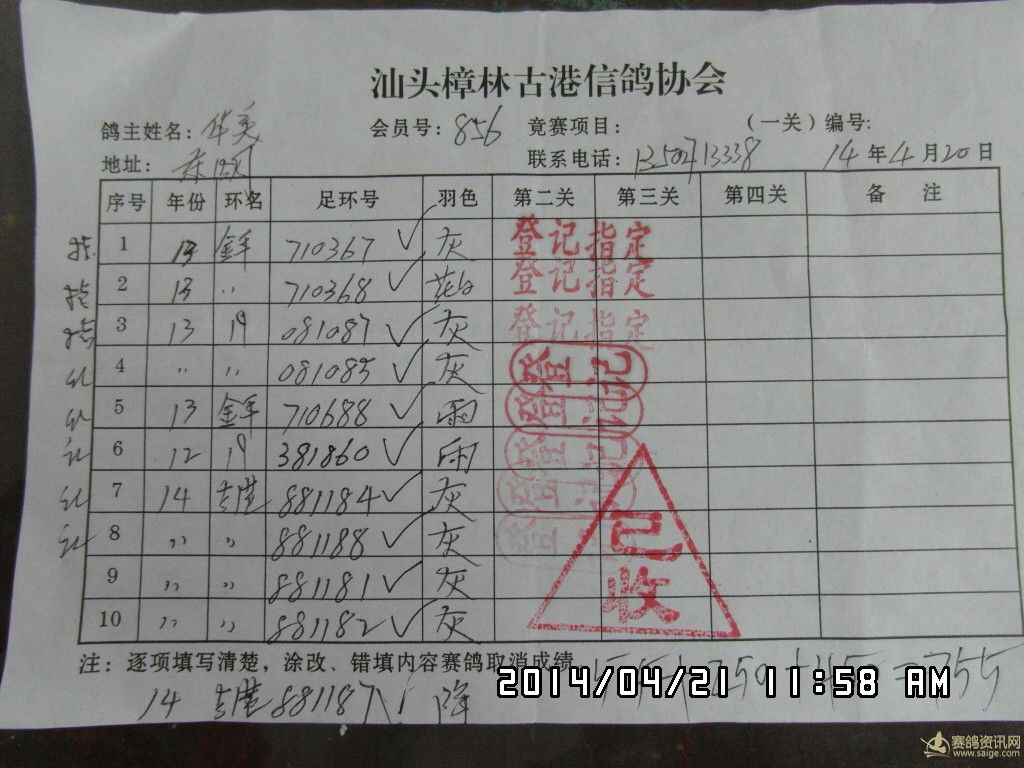 汕头樟林古港信鸽协会
鸽主姓名: 华美 会员号: 856 竞赛项目: (一关) 编号:
地址: 联系电话: 13502713338 14年4月20日
序号 年份 环名 足环号 羽色 第二关 第三关 第四关 备 注
指 1 13 710367 ✓ 灰 登记指定
指 2 13 〃 710368 ✓ 登记指定
指 3 13 081087 ✓ 灰 登记指定
记 4 〃 〃 081085 ✓ 灰 登记
记 5 13 710688 ✓ 雨 登记
记 6 12 381860 ✓ 雨 登记
记 7 14 881184 ✓ 灰 登记
记 8 〃 〃 881188 ✓ 灰 登记
9 〃 〃 881181 ✓ 灰
10 〃 〃 881182 ✓ 灰
已收
注: 逐项填写清楚,涂改、错填内容赛鸽取消成绩
=755
14 881187
2014/04/21 11:58 AM
赛鸽资讯网
www.saige.com